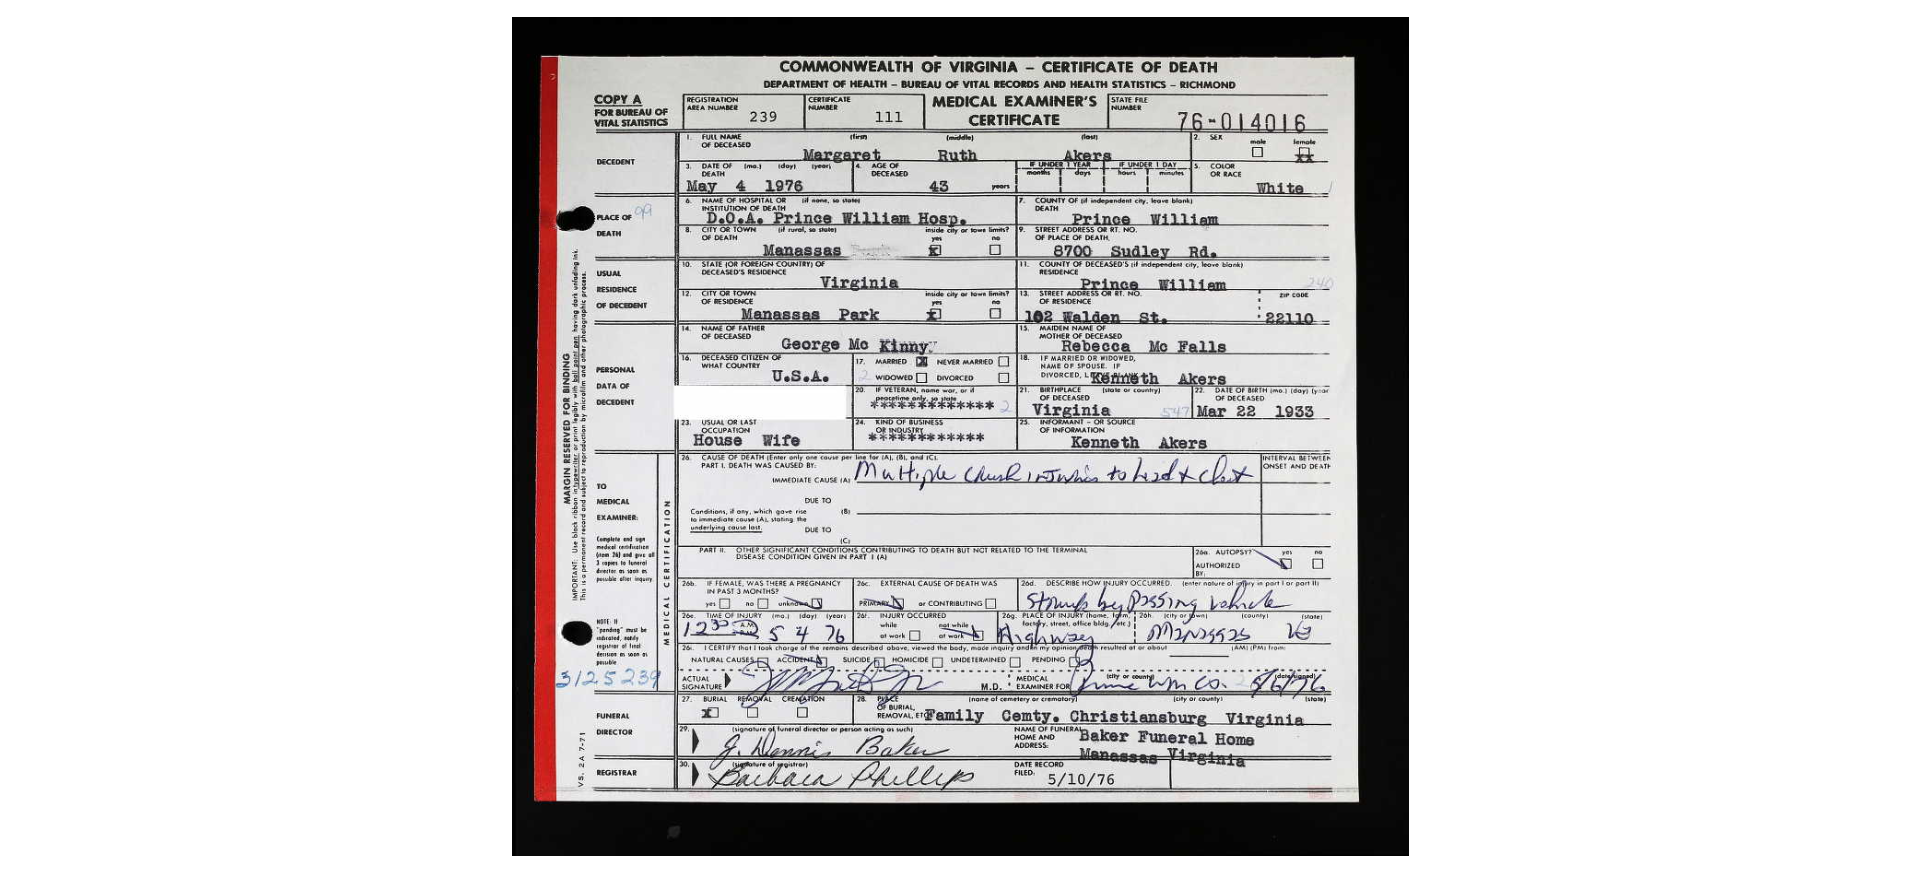 COMMONWEALTH OF VIRGINIA – CERTIFICATE OF DEATH
DEPARTMENT OF HEALTH – BUREAU OF VITAL RECORDS AND HEALTH STATISTICS – RICHMOND
COPY A
FOR BUREAU OF
VITAL STATISTICS
REGISTRATION
AREA NUMBER 239
CERTIFICATE
NUMBER 111
MEDICAL EXAMINER'S
CERTIFICATE
STATE FILE
NUMBER 76-014016
DECEDENT
1. FULL NAME (first) (middle) (last)
OF DECEASED
Margaret Ruth Akers
2. SEX male female
xx
3. DATE OF (mo.) (day) (year)
DEATH
May 4 1976
4. AGE OF
DECEASED
43 years
IF UNDER 1 YEAR IF UNDER 1 DAY
months days hours minutes
5. COLOR
OR RACE
White
PLACE OF 99
DEATH
6. NAME OF HOSPITAL OR (if none, so state)
INSTITUTION OF DEATH
D.O.A. Prince William Hosp.
7. COUNTY OF (if independent city, leave blank)
DEATH
Prince William
8. CITY OR TOWN (if rural, so state) inside city or town limits?
OF DEATH yes no
Manassas x
9. STREET ADDRESS OR RT. NO.
OF PLACE OF DEATH,
8700 Sudley Rd.
USUAL
RESIDENCE
OF DECEDENT
10. STATE (OR FOREIGN COUNTRY) OF
DECEASED'S RESIDENCE
Virginia
11. COUNTY OF DECEASED'S (if independent city, leave blank)
RESIDENCE
Prince William 240
12. CITY OR TOWN inside city or town limits?
OF RESIDENCE yes no
Manassas Park x
13. STREET ADDRESS OR RT. NO. ZIP CODE
OF RESIDENCE
102 Walden St. 22110
PERSONAL
DATA OF
DECEDENT
14. NAME OF FATHER
OF DECEASED
George Mc Kinny
15. MAIDEN NAME OF
MOTHER OF DECEASED
Rebecca Mc Falls
16. DECEASED CITIZEN OF
WHAT COUNTRY
U.S.A.
17. MARRIED x NEVER MARRIED
2 WIDOWED DIVORCED
18. IF MARRIED OR WIDOWED,
NAME OF SPOUSE. IF
DIVORCED,
Kenneth Akers
20. IF VETERAN, name war, or if
peacetime only, so state
************* 2
21. BIRTHPLACE (state or country)
OF DECEASED
Virginia 547
22. DATE OF BIRTH (mo.) (day) (year)
OF DECEASED
Mar 22 1933
23. USUAL OR LAST
OCCUPATION
House Wife
24. KIND OF BUSINESS
OR INDUSTRY
************
25. INFORMANT – OR SOURCE
OF INFORMATION
Kenneth Akers
MARGIN RESERVED FOR BINDING
IMPORTANT: Use black ribbon in typewriter or print legibly with ball point pen having dark unfading ink.
This is a permanent record and subject to reproduction by microfilm and other photographic process.
TO
MEDICAL
EXAMINER:
Complete and sign
medical certification
(item 26) and give all
3 copies to funeral
director as soon as
possible after inquiry.
NOTE: If
"pending" must be
indicated, notify
registrar of final
decision as soon as
possible
3125239
MEDICAL CERTIFICATION
26. CAUSE OF DEATH (Enter only one cause per line for (A), (B), and (C).
PART I. DEATH WAS CAUSED BY:
IMMEDIATE CAUSE (A) Multiple Crush injuries to head & chest
INTERVAL BETWEEN
ONSET AND DEATH
DUE TO
Conditions, if any, which gave rise (B)
to immediate cause (A), stating the
underlying cause last. DUE TO
(C)
PART II. OTHER SIGNIFICANT CONDITIONS CONTRIBUTING TO DEATH BUT NOT RELATED TO THE TERMINAL
DISEASE CONDITION GIVEN IN PART I (A)
26a. AUTOPSY? yes no
AUTHORIZED
BY:
26b. IF FEMALE, WAS THERE A PREGNANCY
IN PAST 3 MONTHS?
yes no unknown
26c. EXTERNAL CAUSE OF DEATH WAS
PRIMARY or CONTRIBUTING
26d. DESCRIBE HOW INJURY OCCURRED. (enter nature of injury in part I or part II)
Struck by passing vehicle
26e. TIME OF INJURY (mo.) (day) (year)
12 30 A.M. 5 4 76
26f. INJURY OCCURRED
while not while
at work at work
26g. PLACE OF INJURY (home, farm,
factory, street, office bldg., etc.)
Highway
26h. (city or town) (county) (state)
Manassas Va
26i. I CERTIFY that I took charge of the remains described above, viewed the body, made inquiry and in my opinion death resulted at or about (AM) (PM) from:
NATURAL CAUSES ACCIDENT SUICIDE HOMICIDE UNDETERMINED PENDING
ACTUAL
SIGNATURE M.D.
MEDICAL (city or county) (date signed)
EXAMINER FOR Prince Wm Co. 5/6/76
FUNERAL
DIRECTOR
27. BURIAL REMOVAL CREMATION
x
28. PLACE (name of cemetery or crematory) (city or county) (state)
OF BURIAL,
REMOVAL, ETC. Family Cemty. Christiansburg Virginia
29. (signature of funeral director or person acting as such)
J. Dennis Baker
NAME OF FUNERAL
HOME AND
ADDRESS:
Baker Funeral Home
Manassas Virginia
REGISTRAR
30. (signature of registrar)
Barbara Phillips
DATE RECORD
FILED: 5/10/76
VS. 2A 7-71